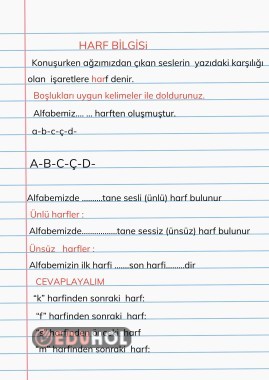 HARF BİLGİSi
Konuşurken ağzımızdan çıkan seslerin yazıdaki karşılığı
olan işaretlere harf denir.
Boşlukları uygun kelimeler ile doldurunuz.
Alfabemiz.... ... harften oluşmuştur.
a-b-c-ç-d-
A-B-C-Ç-D-
Alfabemizde ..........tane sesli (ünlü) harf bulunur
Ünlü harfler :
Alfabemizde.................tane sessiz (ünsüz) harf bulunur
Ünsüz harfler :
Alfabemizin ilk harfi .......son harfi.........dir
CEVAPLAYALIM
“k” harfinden sonraki harf:
“f” harfinden sonraki harf:
harfinden harf
EDUHOL
“m” harfinden sonraki harf: